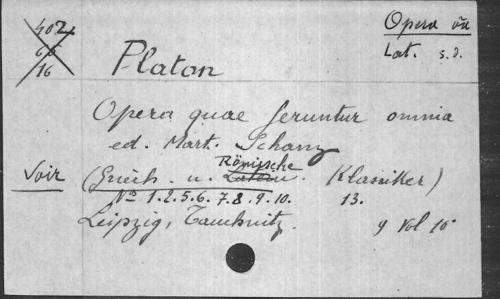 402
66
16
Opera òu
Lat. s.d.
Platon
Opera quae feruntur omnia
ed. Mart. Schanz
Voir
(Griech. u. Latein. Römische Klassiker)
No 1.2.5.6.7.8.9.10. 13.
Leipzig, Tauchnitz.
9 Vol 16°